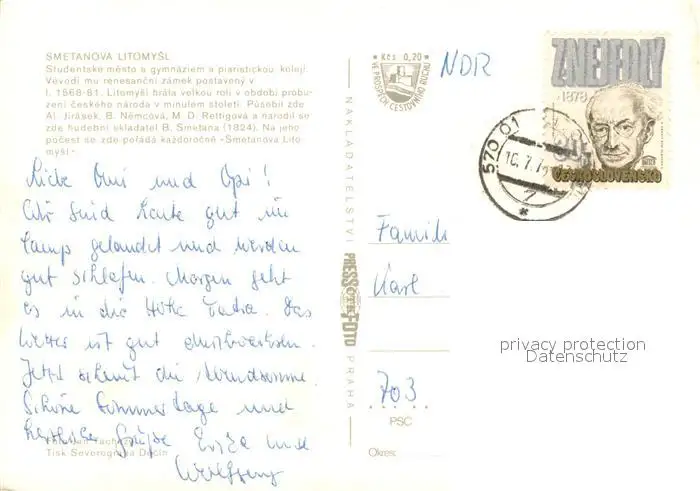 SMETANOVA LITOMYŠL
Studentské město s gymnáziem a pianistickou kolejí.
Vévodí mu renesanční zámek postavený v
l. 1568-81. Litomyšl hrála velkou roli v období probu-
zení českého národa v minulém století. Působil zde
Al. Jirásek, B. Němcová, M. D. Rettigová a narodil se
zde hudební skladatel B. Smetana (1824). Na jeho
počest se zde pořádá každoročně »Smetanova Lito-
myšl«.
Liebe Omi und Opi!
Wir sind heute gut im
Camp gelandet und werden
gut schlafen. Morgen geht
es in die Hohe Tatra. Das
Wetter ist gut
Jetzt scheint die Abendsonne.
Schöne Sommertage und
herzliche Grüße Erika und
Wolfgang
Tisk Severografia Děčín
NAKLADATELSTVÍ PRESSFOTO PRAHA
* Kčs 0,20 *
VE PROSPĚCH CESTOVNÍHO RUCHU
NDR
ZNEJEDLÝ
1878
ČESKOSLOVENSKO
570 01
10.7.7
7
*
Familie
Karl
703
PSČ
Okres:
privacy protection
Datenschutz